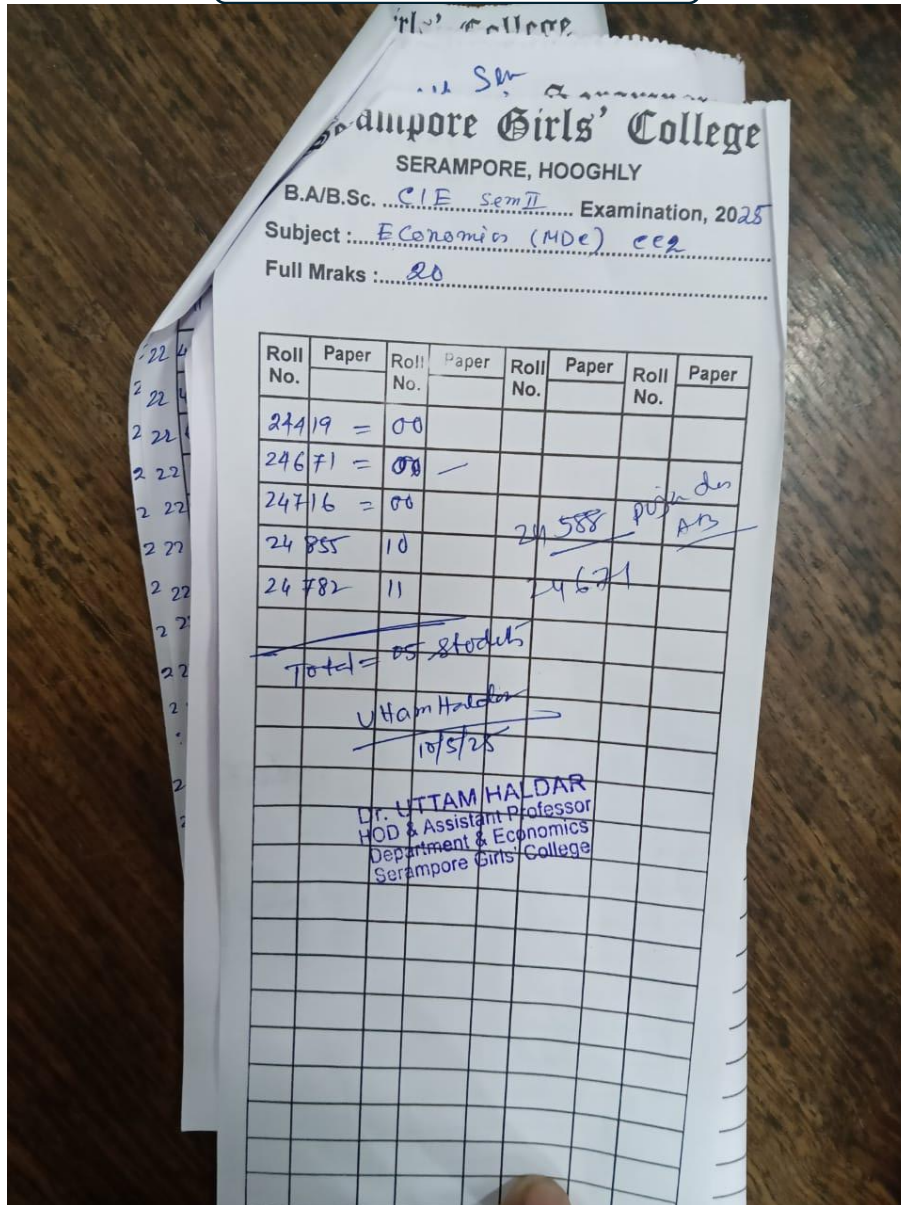 irls' College
Sem
Serampore Girls' College
SERAMPORE, HOOGHLY
B.A/B.Sc. CIE Sem II Examination, 2025
Subject : Economics (MDC) CC2
Full Mraks : 20
Roll No. Paper Roll No. Paper Roll No. Paper Roll No. Paper
24419 = 00
24671 = 00 —
24716 = 00
24588 puja das AB
24 855 10
24671
24 782 11
Total = 05 Stodets
Uttam Haldar
10/5/25
Dr. UTTAM HALDAR
HOD & Assistant Professor
Department & Economics
Serampore Girls' College